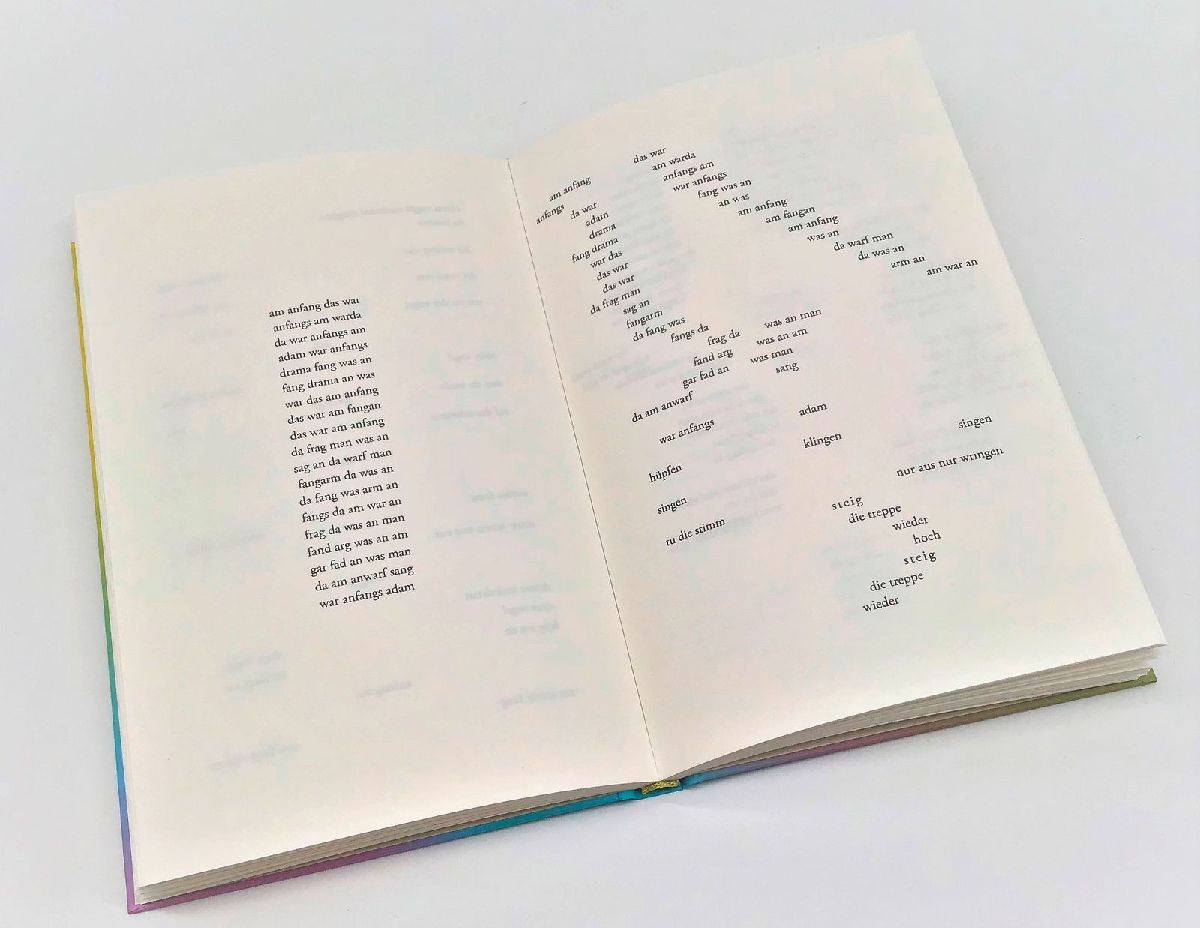 am anfang das war
anfangs am warda
da war anfangs am
adam war anfangs
drama fang was an
fang drama an was
war das am anfang
das war am fangan
das war am anfang
da frag man was an
sag an da warf man
fangarm da was an
da fang was arm an
fangs da am war an
frag da was an man
fand arg was an am
gar fad an was man
da am anwarf sang
war anfangs adam
das war
am anfang
am warda
anfangs
anfangs am
da war
war anfangs
adam
fang was an
drama
an was
fang drama
am anfang
war das
am fangan
das war
am anfang
das war
was an
da frag man
da warf man
sag an
da was an
fangarm
arm an
da fang was
am war an
fangs da
was an man
frag da
was an am
fand arg
was man
gar fad an
sang
da am anwarf
adam
war anfangs
singen
klingen
hüpfen
nur aus nur wringen
singen
steig
tu die stimm
die treppe
wieder
hoch
steig
die treppe
wieder